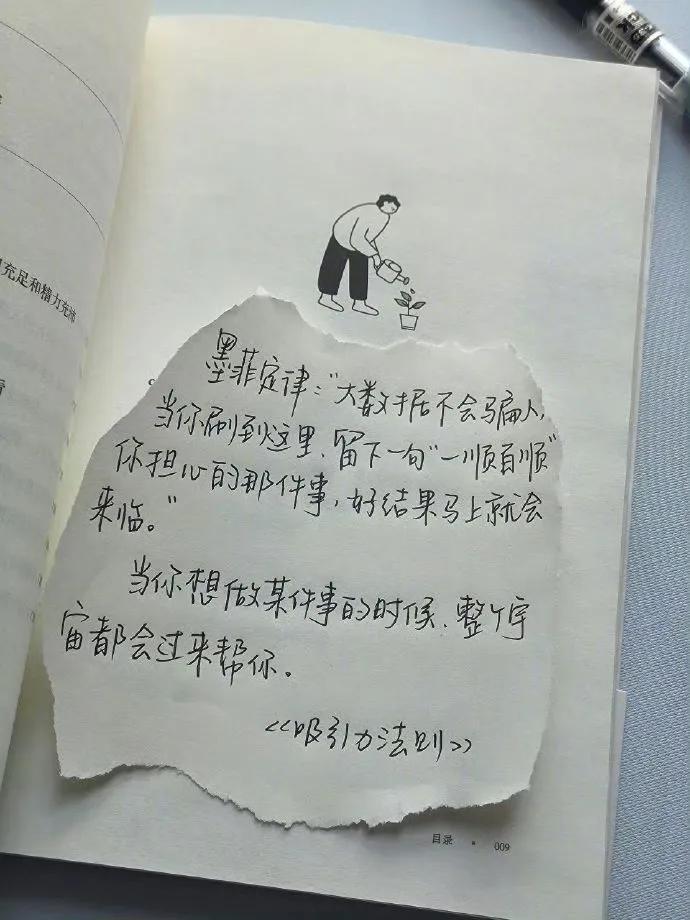 充足和精力充沛
墨菲定律："大数据不会骗人，
当你刷到这里、留下一句"一顺百顺"
你担心的那件事，好结果马上就会
来临。"
当你想做某件事的时候、整个宇
宙都会过来帮你。
《吸引力法则》
目录 009